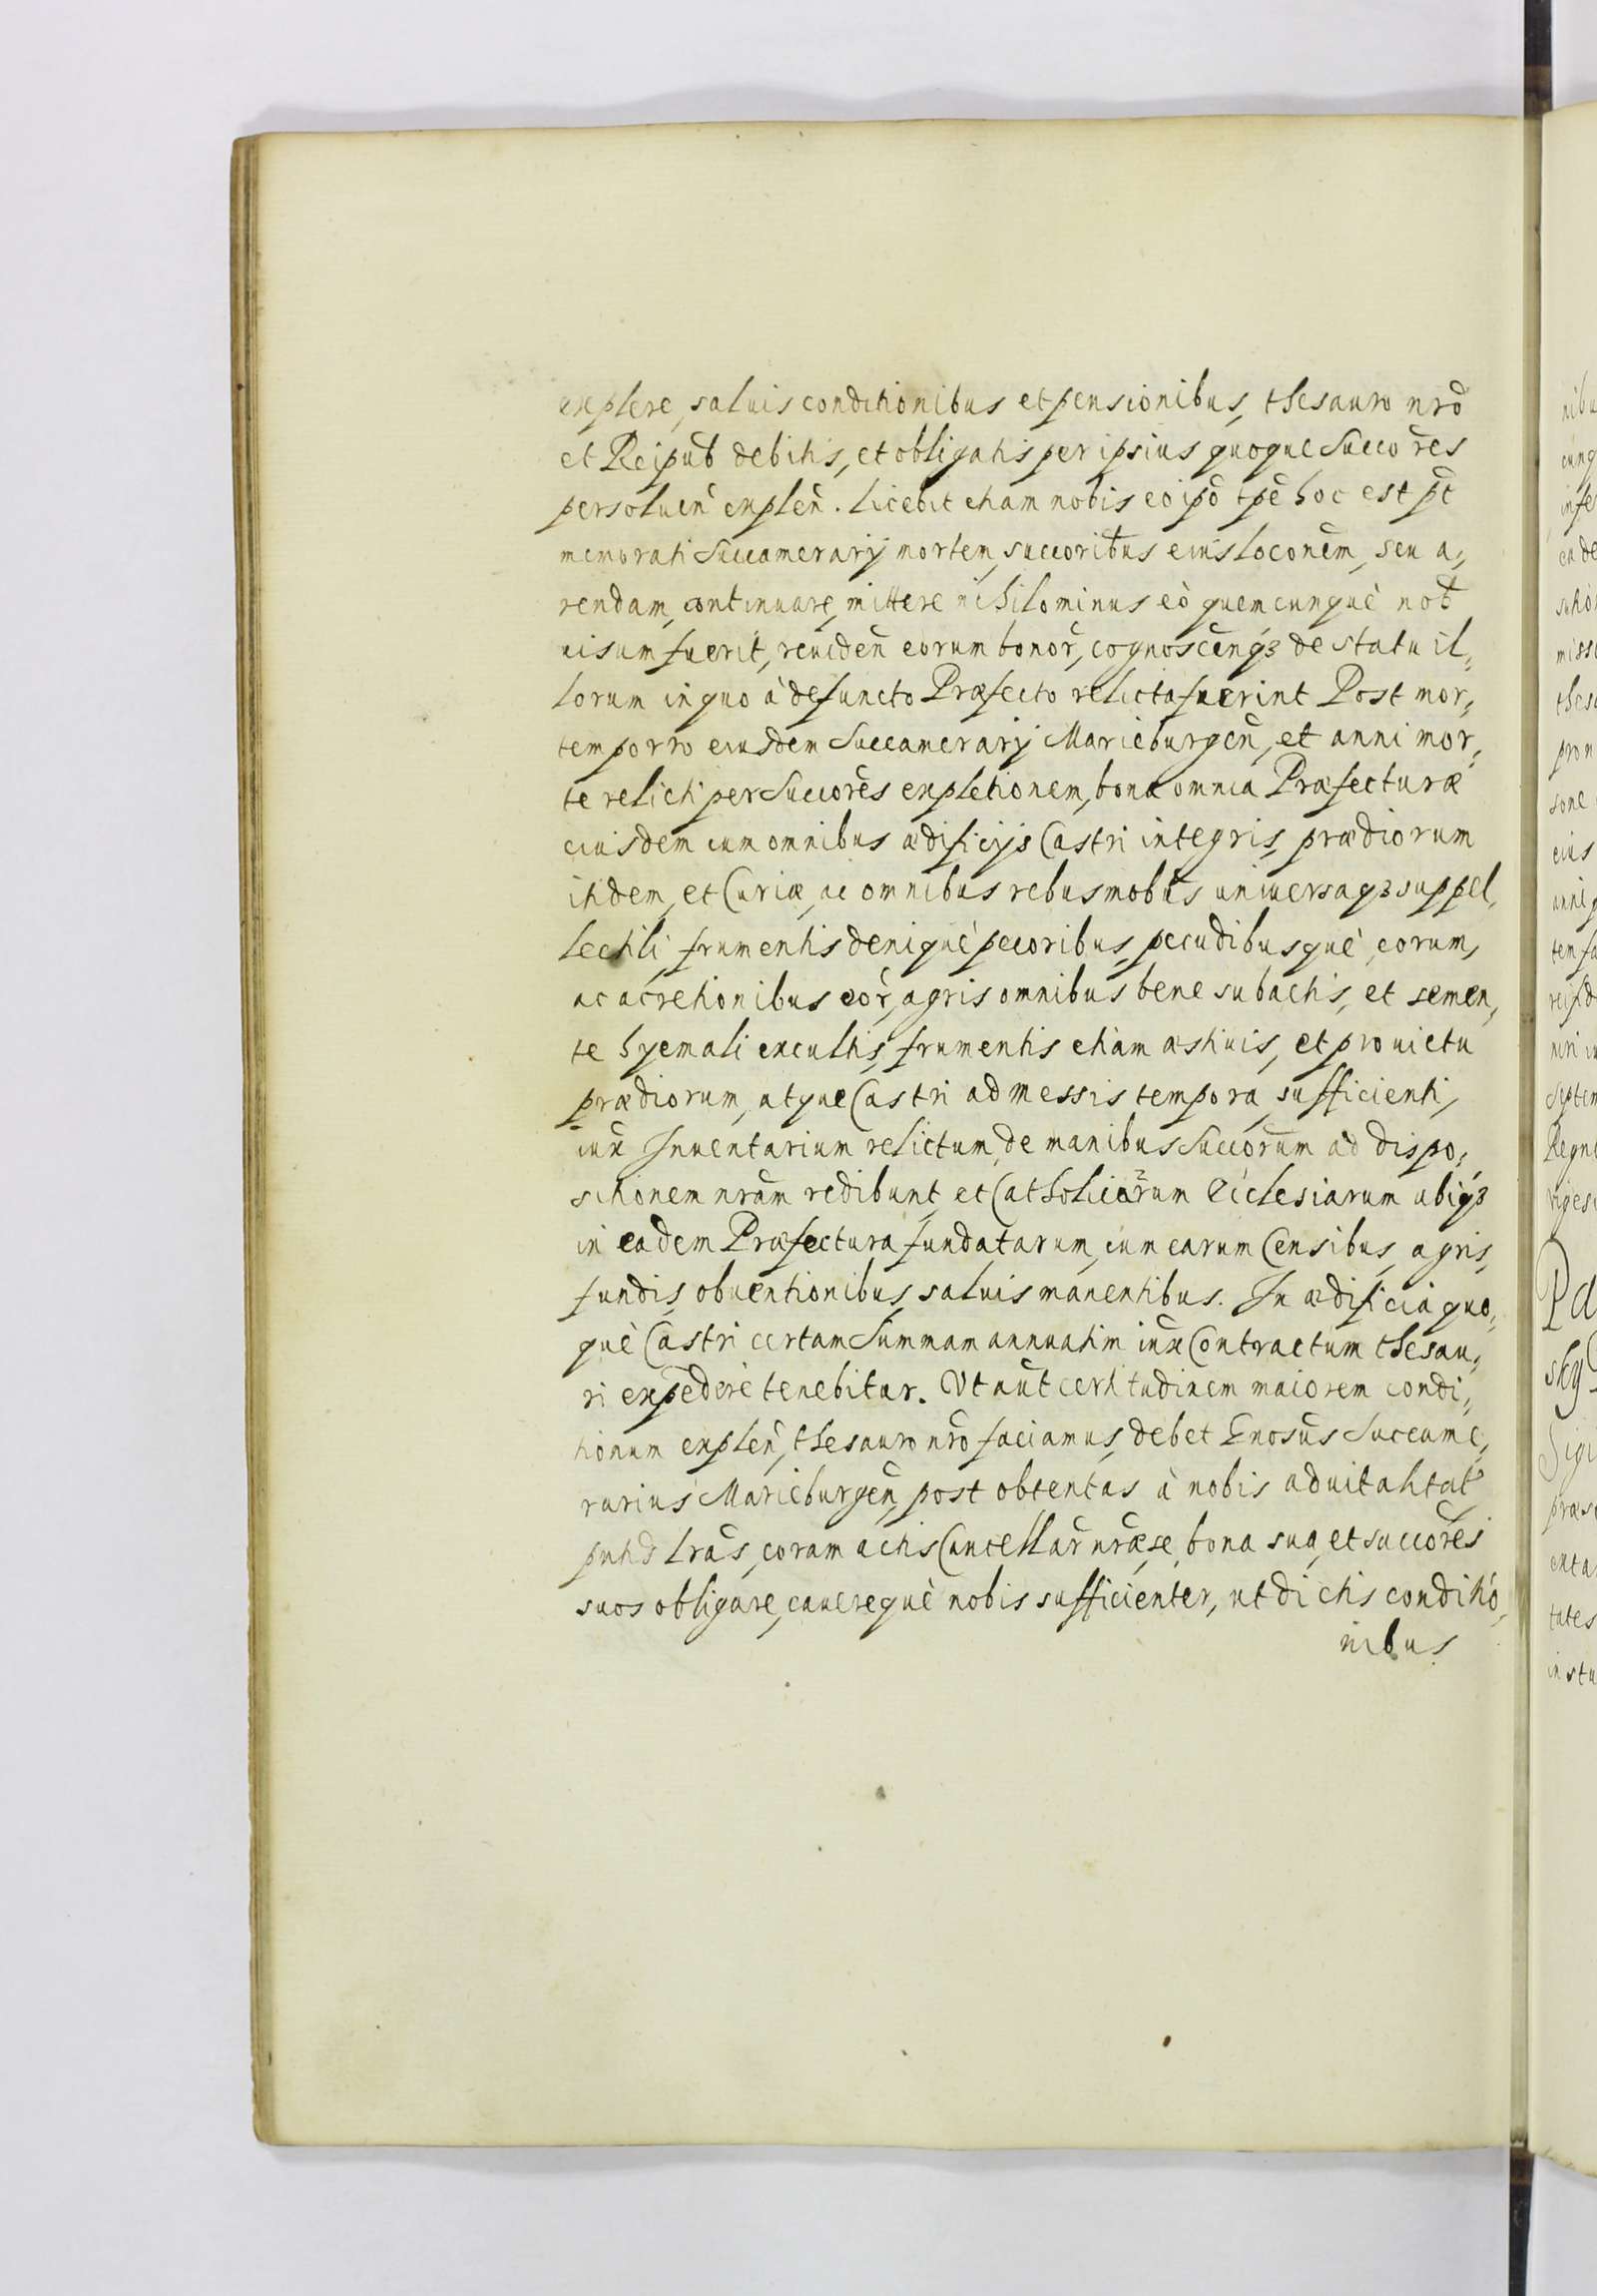 explere, saluis conditionibus et pensionibus, thesauro nrõ
et Reipub̃ debitis, et obligatis per ipsius quoque Succores̃
persoluen̄ explen̄. Licebit etiam nobis eo ip̃o tp̃e hoc est p̃t
memorati Succamerarij mortem, succoribus̃ eius loconem̃, seu a,,
rendam, continuare, mittere nihilominus eò quemcunquè nob̃
uisum fuerit, reuiden̄ eorum bonor̃, cognoscen̄qȝ de statu il,,
lorum in quo à defuncto Præfecto relicta fuerint Post mor,,
tem porro eiusdem Succamerarij Marieburgen̄, et anni mor,,
te relicti per Succores̃ expletionem, bona omnia Præfecturæ
eiusdem cum omnibus ædificijs Castri integris, prædiorum
itidem, et Curiæ, ac omnibus rebus mobus̃ uniuersaqȝ suppel,,
lectili frumentis deniquè pecoribus, pecudibusquè, eorum,
ac acretionibus eor̃, agris omnibus bene subactis, et semen,,
te hyemali excultis, frumentis etiam æstiuis, et pro uictu
prædiorum, atque Castri ad messis tempora, sufficienti,
iux̃ Inuentarium relictum, de manibus Succorum̃ ad dispo,,
sitionem nram̃ redibunt, et Catholicarum Ecclesiarum ubiqȝ
in eadem Præfectura fundatarum, cum earum Censibus, agris,
fundis, obuentionibus, saluis manentibus. In ædificia quo,,
què Castri certam Summam annuatim iux̃ Contractum thesau,,
ri expedere tenebitur. Vt aut̃ certitudinem maiorem condi,,
tionum explen̄, thesauro nrõ faciamus, debet Gnosus̃ Succame,,
rarius Marieburgen̄, post obtentas à nobis aduitalitat̃
pntes̃ lras̃, coram actis Cancellar̃ nræ̃ se, bona sua, et succores̃
suos obligare, cauerequè nobis sufficienter, ut dictis conditio,,
nibus